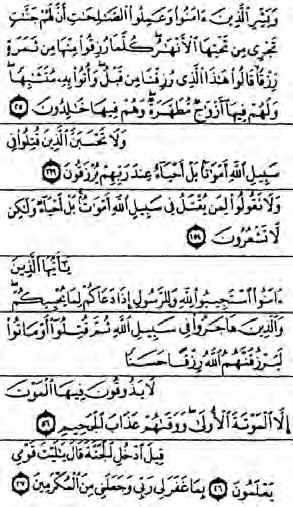 وَبَشِّرِ الَّذِينَ ءَامَنُوا وَعَمِلُوا الصَّالِحَاتِ أَنَّ لَهُمْ جَنَّاتٍ
تَجْرِي مِن تَحْتِهَا الْأَنْهَارُ كُلَّمَا رُزِقُوا مِنْهَا مِن ثَمَرَةٍ
رِّزْقًا قَالُوا هَٰذَا الَّذِي رُزِقْنَا مِن قَبْلُ وَأُتُوا بِهِ مُتَشَابِهًا
وَلَهُمْ فِيهَا أَزْوَاجٌ مُّطَهَّرَةٌ وَهُمْ فِيهَا خَالِدُونَ ٢٥
وَلَا تَحْسَبَنَّ الَّذِينَ قُتِلُوا فِي
سَبِيلِ اللَّهِ أَمْوَاتًا بَلْ أَحْيَاءٌ عِندَ رَبِّهِمْ يُرْزَقُونَ ١٦٩
وَلَا تَقُولُوا لِمَن يُقْتَلُ فِي سَبِيلِ اللَّهِ أَمْوَاتٌ بَلْ أَحْيَاءٌ وَلَٰكِن
لَّا تَشْعُرُونَ ١٥٤
يَا أَيُّهَا الَّذِينَ
ءَامَنُوا اسْتَجِيبُوا لِلَّهِ وَلِلرَّسُولِ إِذَا دَعَاكُمْ لِمَا يُحْيِيكُمْ
وَالَّذِينَ هَاجَرُوا فِي سَبِيلِ اللَّهِ ثُمَّ قُتِلُوا أَوْ مَاتُوا
لَيَرْزُقَنَّهُمُ اللَّهُ رِزْقًا حَسَنًا
لَا يَذُوقُونَ فِيهَا الْمَوْتَ
إِلَّا الْمَوْتَةَ الْأُولَىٰ وَوَقَاهُمْ عَذَابَ الْجَحِيمِ ٥٦
قِيلَ ادْخُلِ الْجَنَّةَ قَالَ يَا لَيْتَ قَوْمِي
يَعْلَمُونَ ٢٦ بِمَا غَفَرَ لِي رَبِّي وَجَعَلَنِي مِنَ الْمُكْرَمِينَ ٢٧